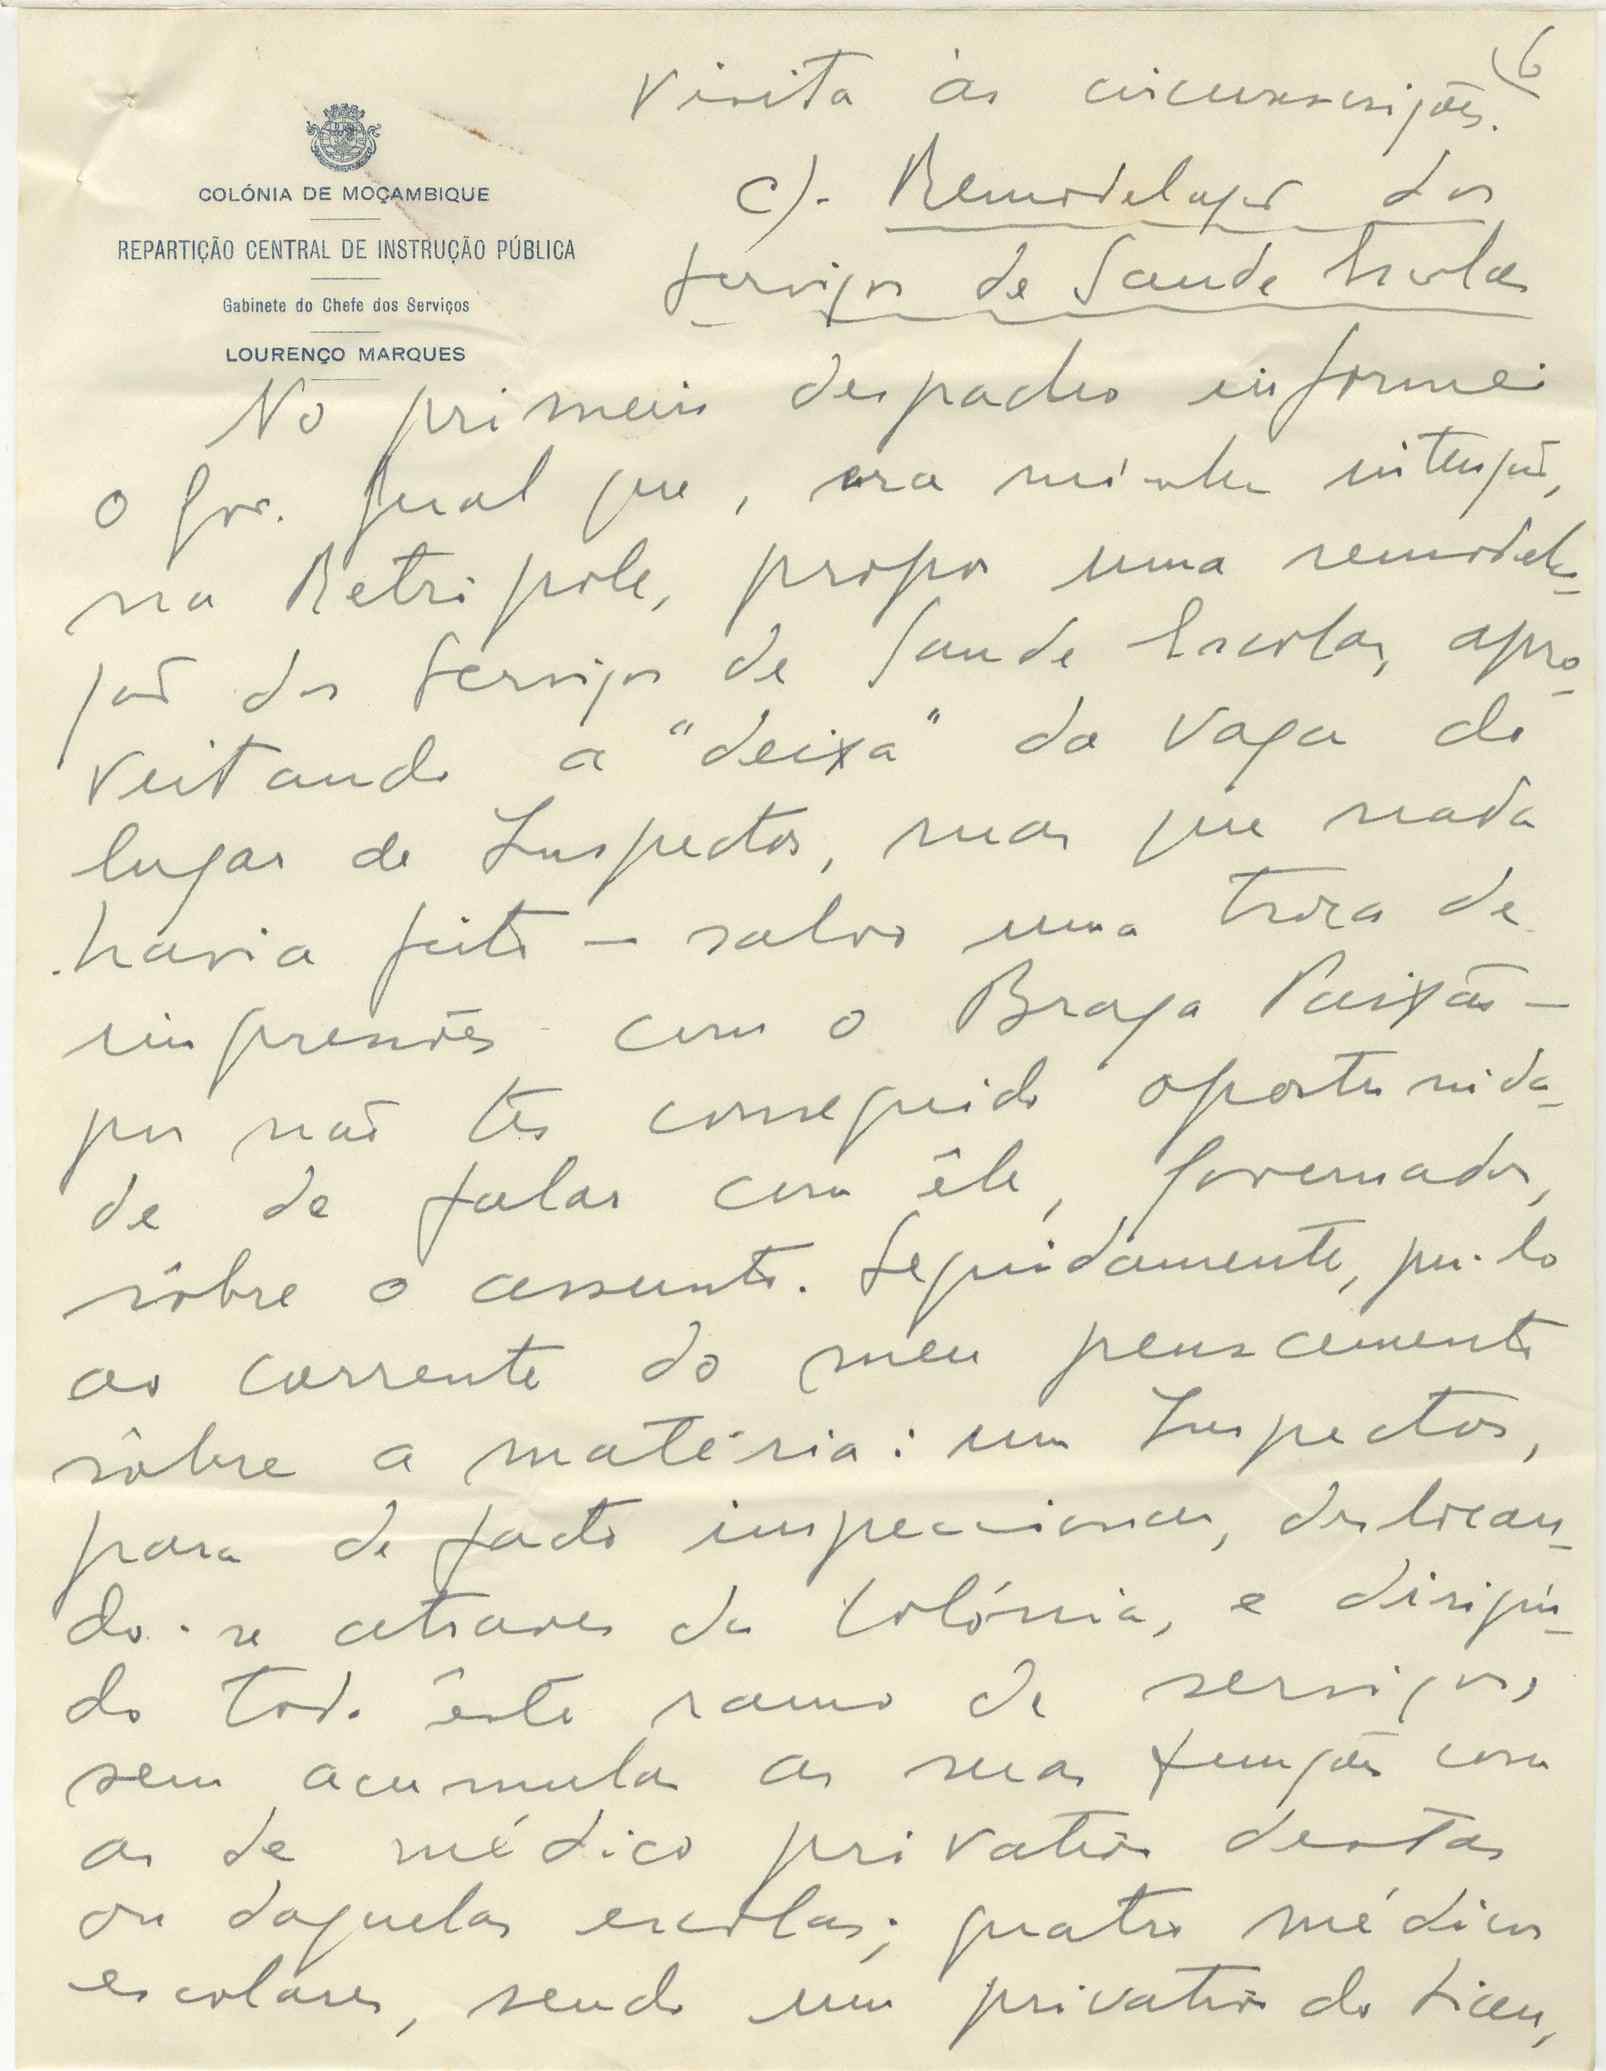 6
visita às circunscrições.
COLÓNIA DE MOÇAMBIQUE
REPARTIÇÃO CENTRAL DE INSTRUÇÃO PÚBLICA
Gabinete do Chefe dos Serviços
LOURENÇO MARQUES
c). Remodelação dos
Serviços de Saude Escolar
No primeiro despacho informei
o Gov. Geral que, era minha intenção,
na Metrópole, propor uma remodela-
ção dos Serviços de Saude Escolar, apro-
veitando a "deixa" da vaga do
lugar de Inspector, mas que nada
havia feito — salvo uma troca de
impressões com o Braga Paixão —
por não ter conseguido oportunida-
de de falar com êle, Governador,
sôbre o assunto. Seguidamente, pu-lo
ao corrente do meu pensamento
sôbre a matéria: um Inspector,
para de facto inspeccionar, deslocan-
do-se atraves da Colónia, e dirigin-
do todo êste ramo de serviços,
sem acumular as suas funções com
as de médico privativo destas
ou daquelas escolas; quatro médicos
escolares, sendo um privativo do Liceu,